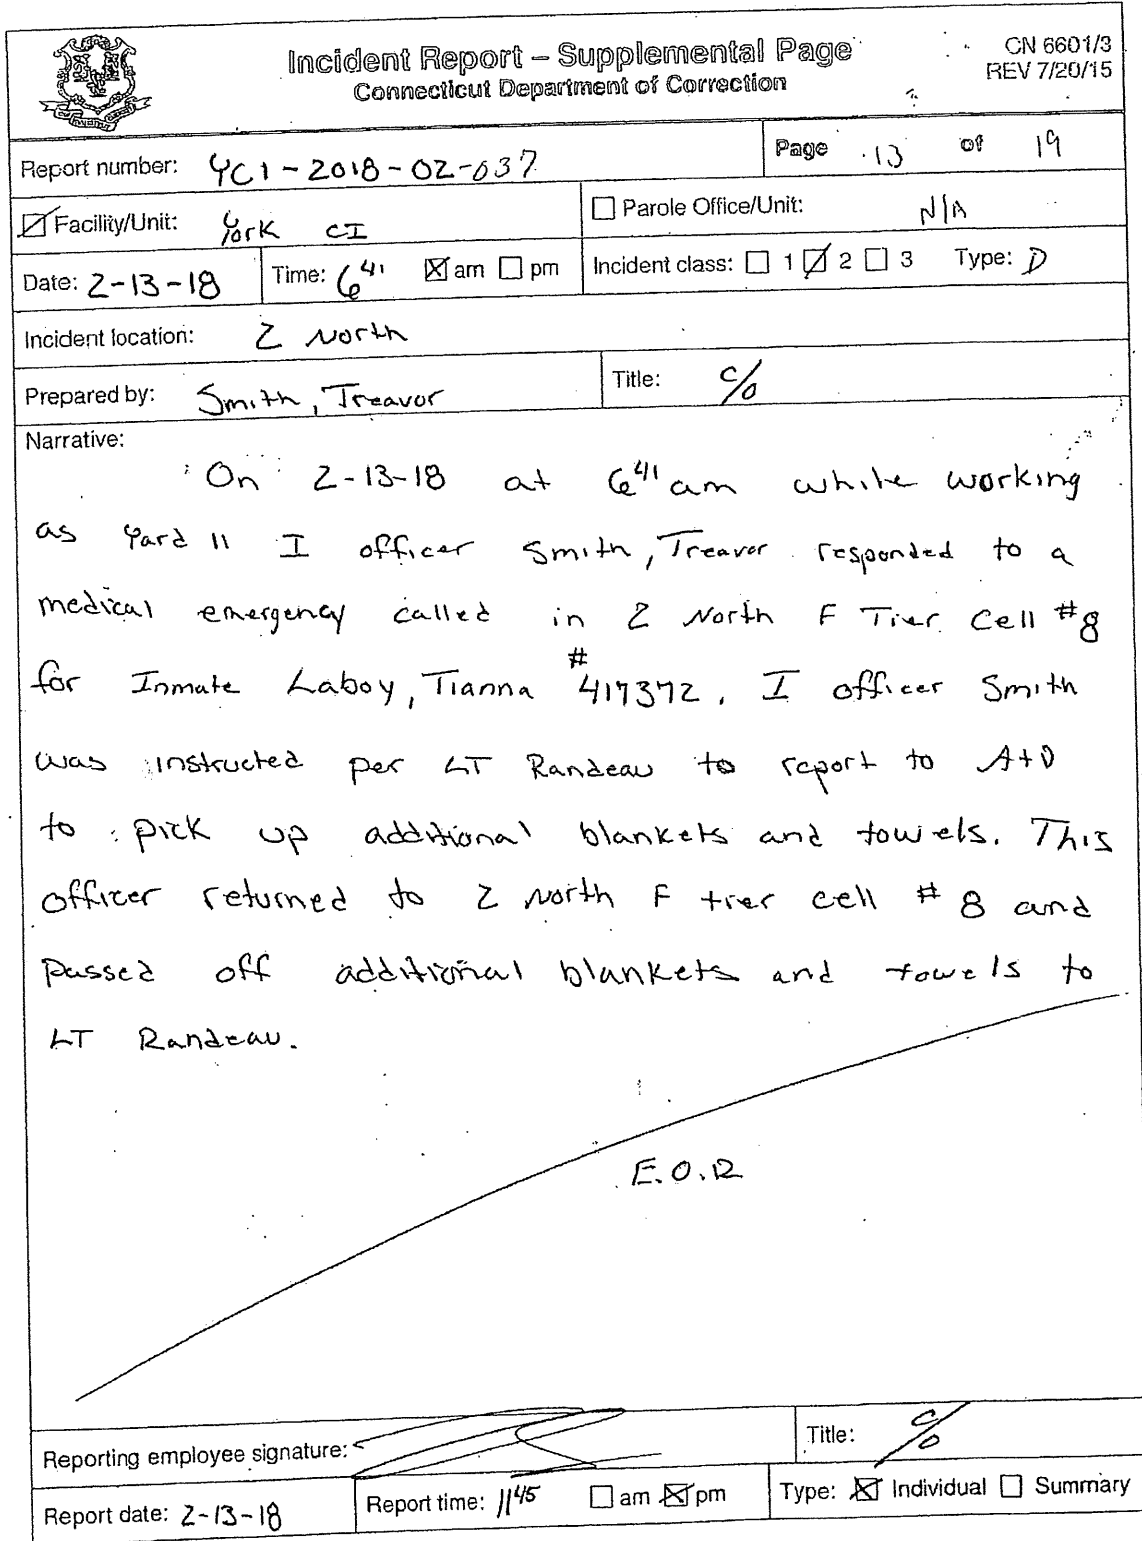 Incident Report – Supplemental Page
Connecticut Department of Correction
CN 6601/3
REV 7/20/15
Report number: YCI-2018-02-037
Page 13 of 19
Facility/Unit: York CI
Parole Office/Unit: N/A
Date: 2-13-18
Time: 6 41 am pm
Incident class: 1 2 3 Type: D
Incident location: 2 North
Prepared by: Smith, Treavor
Title: C/O
Narrative:
On 2-13-18 at 6 41 am while working
as Yard 11 I officer Smith, Treavor responded to a
medical emergency called in 2 North F Tier Cell #8
for Inmate Laboy, Tianna #417372. I officer Smith
was instructed per LT Randeau to report to A+D
to pick up additional blankets and towels. This
officer returned to 2 North F tier cell #8 and
passed off additional blankets and towels to
LT Randeau.
E.O.R
Reporting employee signature:
Title: C/O
Report date: 2-13-18
Report time: 11 45 am pm
Type: Individual Summary